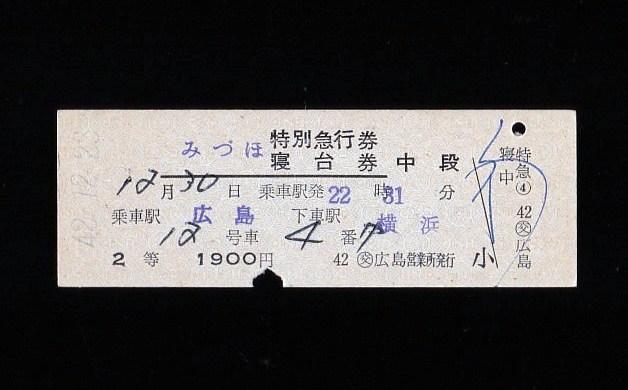 みづほ 特別急行券
寝台券 中段
12月30日 乗車駅発22時31分
乗車駅 広島 下車駅 横浜
12号車 4番
2等 1900円 42 交 広島営業所発行 小
特急④
寝中
42 交 広島